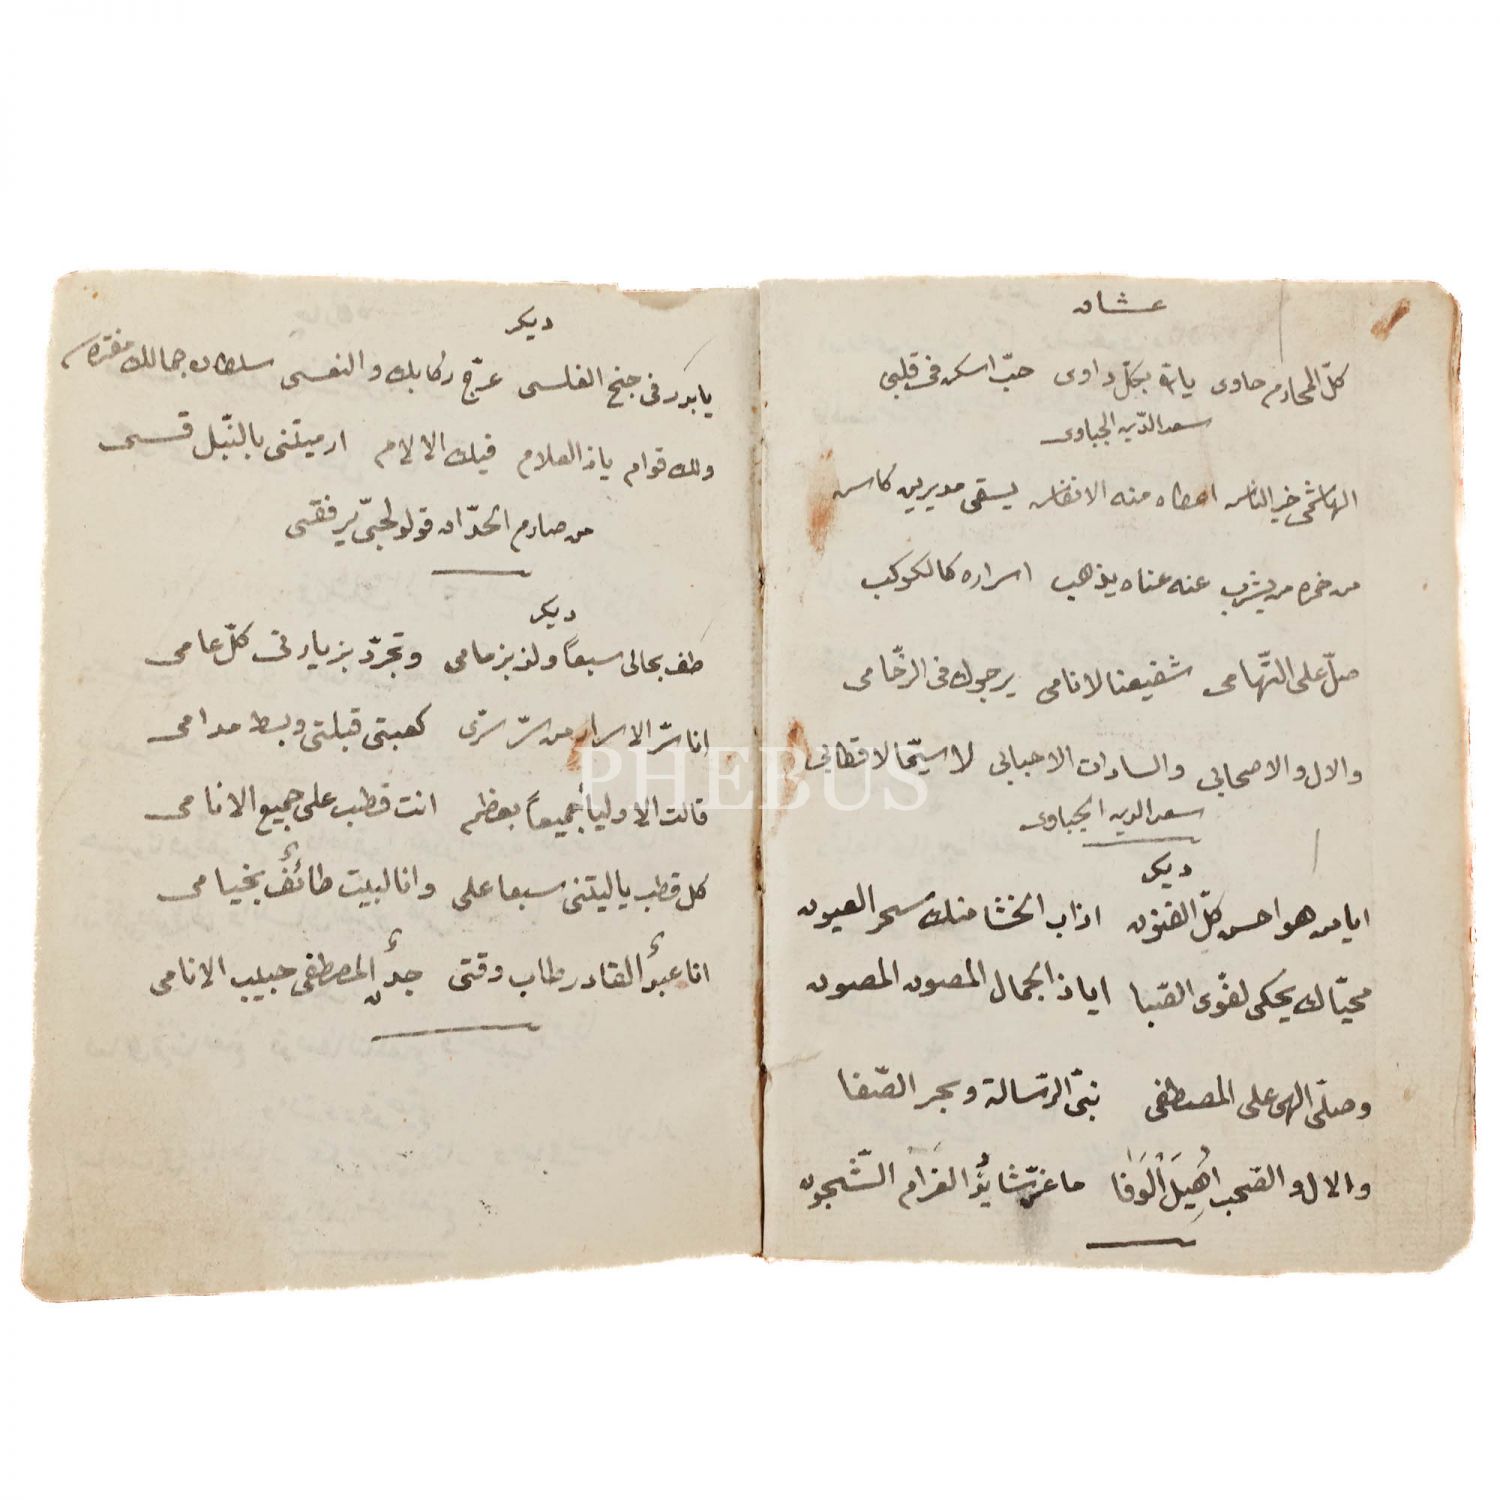 عشاق
كلّ المحارم حاوى يا بكلّ داوى حبّ اسكن فى قلبى
سعد الدّين الجباوى
الهاشمى خير الناس اعطاه منه الانفاس يسقى مديرين كاس
من خمره من يشرب عنه عناه يذهب اسراره كالكوكب
صلّ على التّهامى شفيعنا لانامى يرجوك فى الرخّامى
والال والاصحابى والسادات الاحبابى لا سيّما لاقطابى
سعد الدين الجباوى
ديكر
ايا من هو احسن كلّ الفنون اذاب الحشا منك سحر العيون
محيّاك يحكى لغوى القبا ايا ذا الجمال المصون المصون
وصلّى الهى على المصطفى نبىّ الرّسالة وبحر الصّفا
والال والصّحب اُهَيلَ اْلوَفَا ما غرّ شايوٌ الغرام الشّجون
ديكر
يا بدر فى جنح الغلسى عرّج ركابك والنفسى سلطان جمالك
ولك قوام ياذ العلام فيك الالام ارميتنى بالنّبل قسى
من صارم الحدّاق قولو لحبّى يرفقنى
ديكر
طف بحالى سبعاً ولذ بزمامى وتجرّد بزيارتى كلّ عامى
انا سرّ الاسرار من سرّ سرّى كعبتى قبلتى وبسط مدامى
قالت الاولياُ جميعاً بعظم انت قطب على جميع الانامى
كل قطب ياليتنى سبعا على وانا لبيت طائفٌ بخيامى
انا عبدُ القادر طاب وقتى جدّى المصطفى حبيب الانامى
PHEBUS